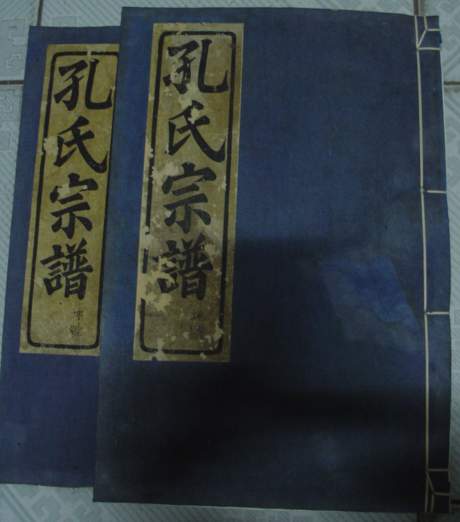 孔氏宗譜
孔氏宗譜